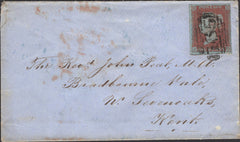 The Revd John Peal M.A.
Bradbourne Vale,
Nr Sevenoaks,
Kent